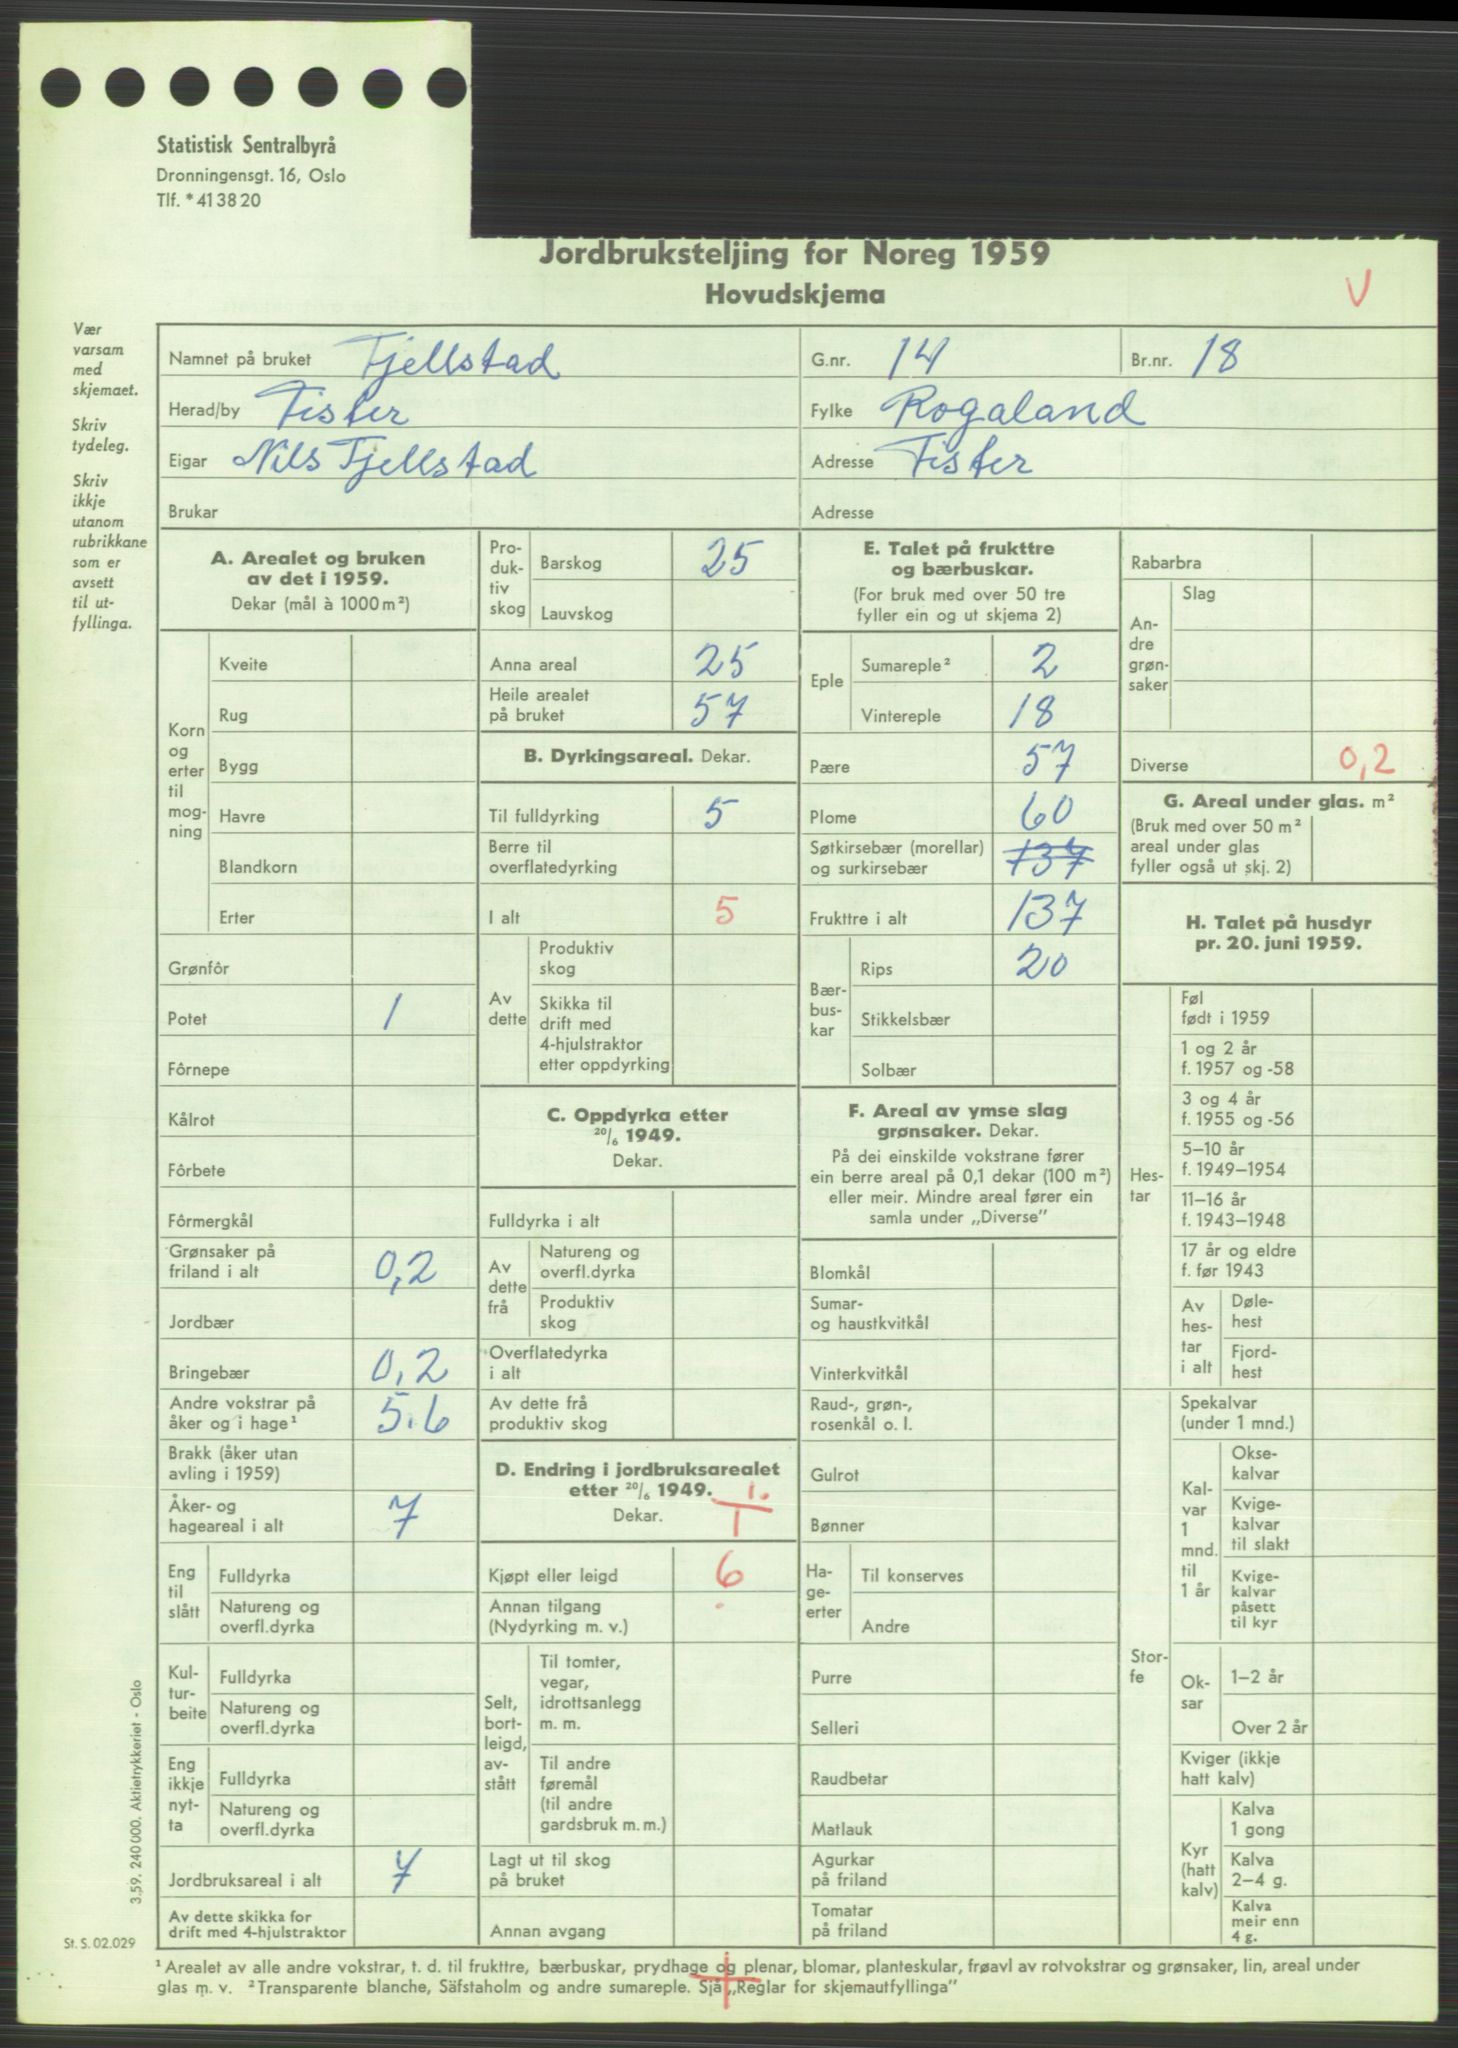 Statistisk Sentralbyrå
Dronningensgt. 16, Oslo
Tlf. *41 38 20
Jordbruksteljing for Noreg 1959
Hovudskjema
V
Vær
varsam
med
skjemaet.
Skriv
tydeleg.
Skriv
ikkje
utanom
rubrikkane
som er
avsett
til ut-
fyllinga.
Namnet på bruket Tjellstad G.nr. 14 Br.nr. 18
Herad/by Fister Fylke Rogaland
Eigar Nils Tjellstad Adresse Fister
Brukar Adresse
A. Arealet og bruken
av det i 1959.
Dekar (mål à 1000 m²)
Korn
og
erter
til
mog-
ning
Kveite
Rug
Bygg
Havre
Blandkorn
Erter
Grønfôr
Potet 1
Fôrnepe
Kålrot
Fôrbete
Fôrmergkål
Grønsaker på
friland i alt 0,2
Jordbær
Bringebær 0,2
Andre vokstrar på
åker og i hage¹ 5.6
Brakk (åker utan
avling i 1959)
Åker- og
hageareal i alt 7
Eng
til
slått
Fulldyrka
Natureng og
overfl.dyrka
Kul-
tur-
beite
Fulldyrka
Natureng og
overfl.dyrka
Eng
ikkje
nyt-
ta
Fulldyrka
Natureng og
overfl.dyrka
Jordbruksareal i alt 7
Av dette skikka for
drift med 4-hjulstraktor
Pro-
duk-
tiv
skog
Barskog 25
Lauvskog
Anna areal 25
Heile arealet
på bruket 57
B. Dyrkingsareal. Dekar.
Til fulldyrking 5
Berre til
overflatedyrking
I alt 5
Av
dette
Produktiv
skog
Skikka til
drift med
4-hjulstraktor
etter oppdyrking
C. Oppdyrka etter
20/6 1949.
Dekar.
Fulldyrka i alt
Av
dette
frå
Natureng og
overfl.dyrka
Produktiv
skog
Overflatedyrka
i alt
Av dette frå
produktiv skog
D. Endring i jordbruksarealet
etter 20/6 1949.
Dekar.
Kjøpt eller leigd 6
Annan tilgang
(Nydyrking m. v.)
Selt,
bort-
leigd,
av-
stått
Til tomter,
vegar,
idrottsanlegg
m. m.
Til andre
føremål
(til andre
gardsbruk m. m.)
Lagt ut til skog
på bruket
Annan avgang
E. Talet på frukttre
og bærbuskar.
(For bruk med over 50 tre
fyller ein og ut skjema 2)
Eple
Sumareple² 2
Vintereple 18
Pære 57
Plome 60
Søtkirsebær (morellar)
og surkirsebær 137
Frukttre i alt 137
Bær-
bus-
kar
Rips 20
Stikkelsbær
Solbær
F. Areal av ymse slag
grønsaker. Dekar.
På dei einskilde vokstrane fører
ein berre areal på 0,1 dekar (100 m²)
eller meir. Mindre areal fører ein
samla under „Diverse”
Blomkål
Sumar-
og haustkvitkål
Vinterkvitkål
Raud-, grøn-,
rosenkål o. l.
Gulrot
Bønner
Ha-
ge-
erter
Til konserves
Andre
Purre
Selleri
Raudbetar
Matlauk
Agurkar
på friland
Tomatar
på friland
Rabarbra
An-
dre
grøn-
saker
Slag
Diverse 0,2
G. Areal under glas. m²
(Bruk med over 50 m²
areal under glas
fyller også ut skj. 2)
H. Talet på husdyr
pr. 20. juni 1959.
Hes-
tar
Føl
født i 1959
1 og 2 år
f. 1957 og -58
3 og 4 år
f. 1955 og -56
5–10 år
f. 1949–1954
11–16 år
f. 1943–1948
17 år og eldre
f. før 1943
Av
hes-
tar
i alt
Døle-
hest
Fjord-
hest
Stor-
fe
Spekalvar
(under 1 mnd.)
Kal-
var
1
mnd.
til
1 år
Okse-
kalvar
Kvige-
kalvar
til slakt
Kvige-
kalvar
påsett
til kyr
Ok-
sar
1–2 år
Over 2 år
Kviger (ikkje
hatt kalv)
Kyr
(hatt
kalv)
Kalva
1 gong
Kalva
2–4 g.
Kalva
meir enn
4 g.
3,59. 240 000. Aktietrykkeriet - Oslo
St. S. 02.029
¹ Arealet av alle andre vokstrar, t. d. til frukttre, bærbuskar, prydhage og plenar, blomar, planteskular, frøavl av rotvokstrar og grønsaker, lin, areal under
glas m. v. ² Transparente blanche, Säfstaholm og andre sumareple. Sjå „Reglar for skjemautfyllinga”